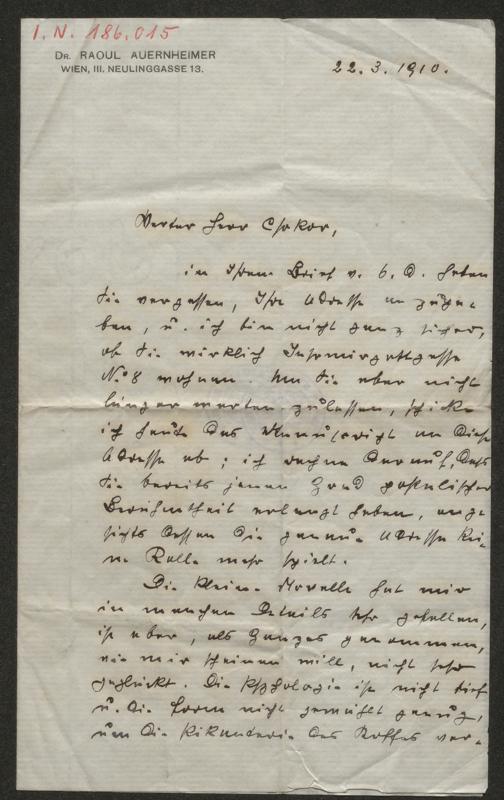 I. N. 186.015
DR. RAOUL AUERNHEIMER
WIEN, III. NEULINGGASSE 13.
22.3.1910.
Werter Herr Csokor,
in Ihrem Brief v. 6. d. haben
Sie vergessen, Ihre Adresse anzuge-
ben, u. ich bin nicht ganz sicher,
ob Sie wirklich
No 8 wohnen. Um Sie aber nicht
länger warten zu lassen, schicke
ich heute das Manuscript an diese
Adresse ab; ich rechne darauf, dass
Sie bereits jenen Grad postalischer
Berühmtheit erlangt haben, ange-
sichts dessen die genaue Adresse kei-
ne Rolle mehr spielt.
Die kleine Novelle hat mir
in manchen Details sehr gefallen,
ist aber, als Ganzes genommen,
wie mir scheinen will, nicht sehr
geglückt. Die Psychologie ist nicht tief
u. die Form nicht gewählt genug,
um die Pikanterie des Stoffes ver-